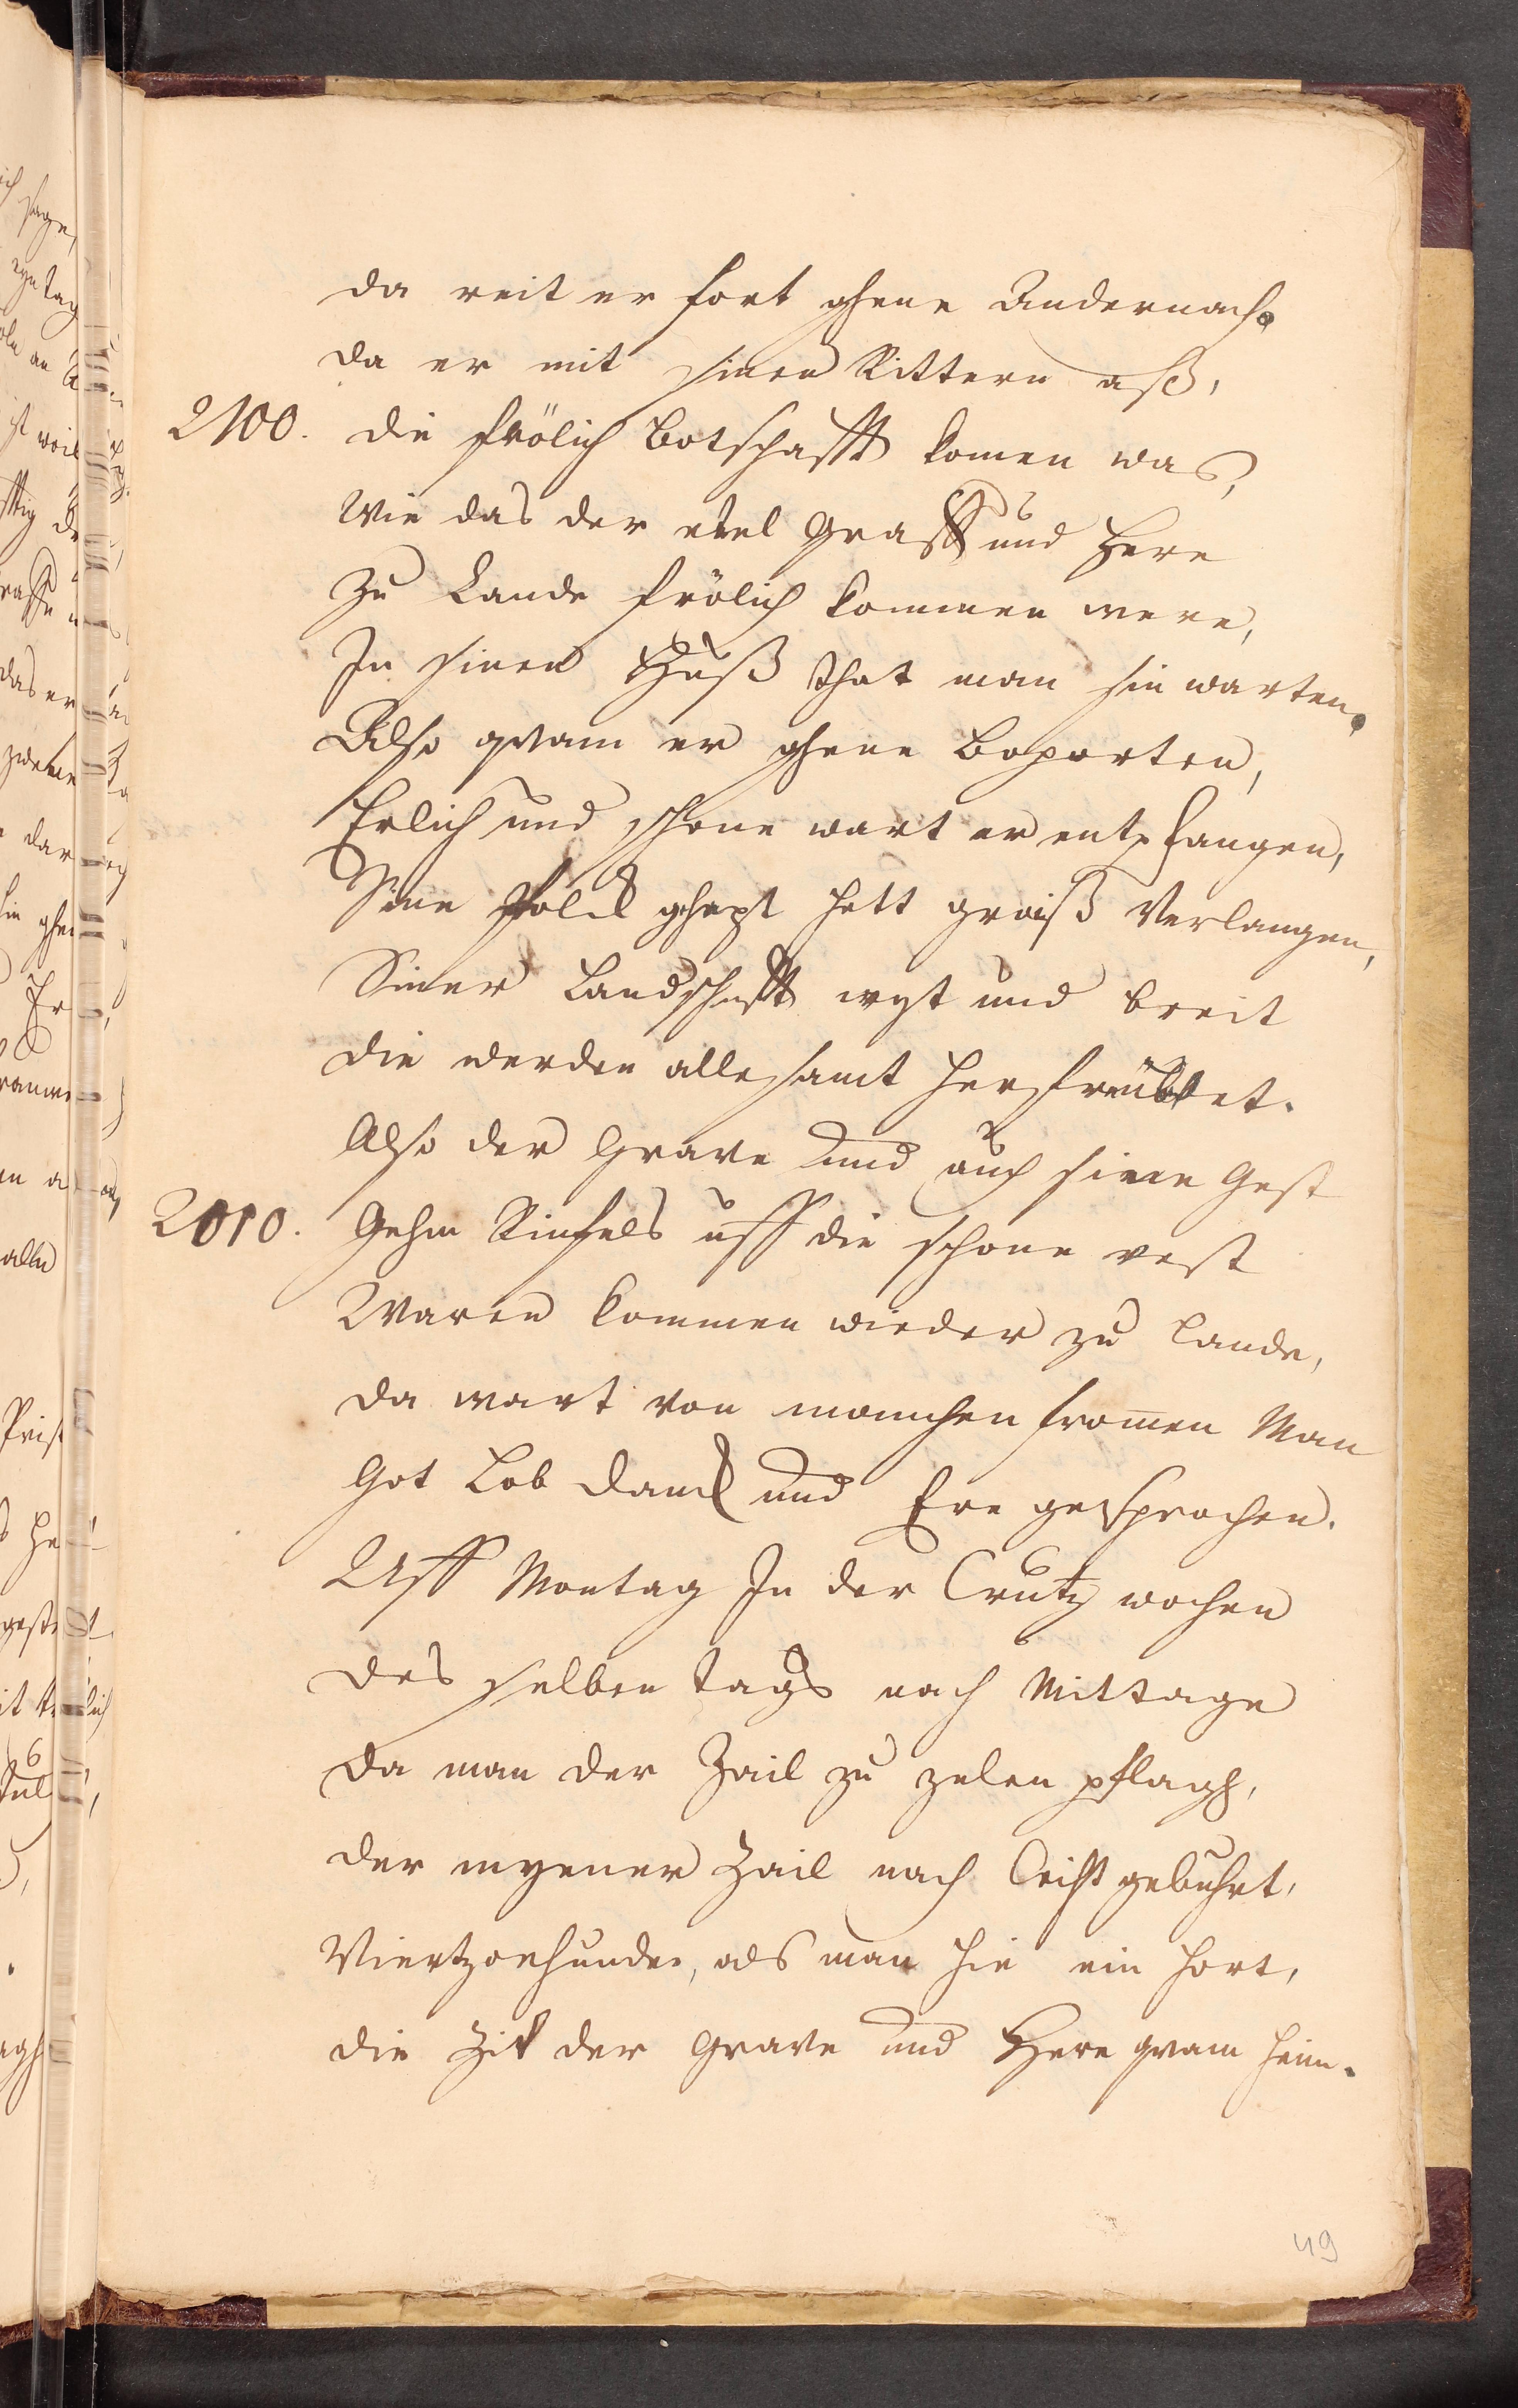 da reit er fort ghene Andernach.
da er mit sinen Rittern aß,
2100. die frölich Botschafft komen was,
Wie das der edel Graff und Here
Zu Lande frölich kommen were,
In sinem Huß that man sin warten.
Also qvam er ghene Boparten,
Erlich und schone wart er entpfangen,
Sine Folck gehapt hett groiß Verlangen,
Siner Landschafft wyt und breit
die werden alle samt her
Also der Grave und auch sinen Gest
2010. Gehn Rinfels uff die schone vest
Waren kommen wieder zu Lande,
da wart von manchen fromen Man
Got Lob Danck und Ere gesprochen.
Uff Montag In der Crutz wochen
des selben tags nach Mittage
da man der Zail zu zelen pflagh,
der mynner Zail nach Crist gebuhrt,
Viertzonhunder, als man hie ein hort,
die Zit der Grave und Here qvam heim.
49